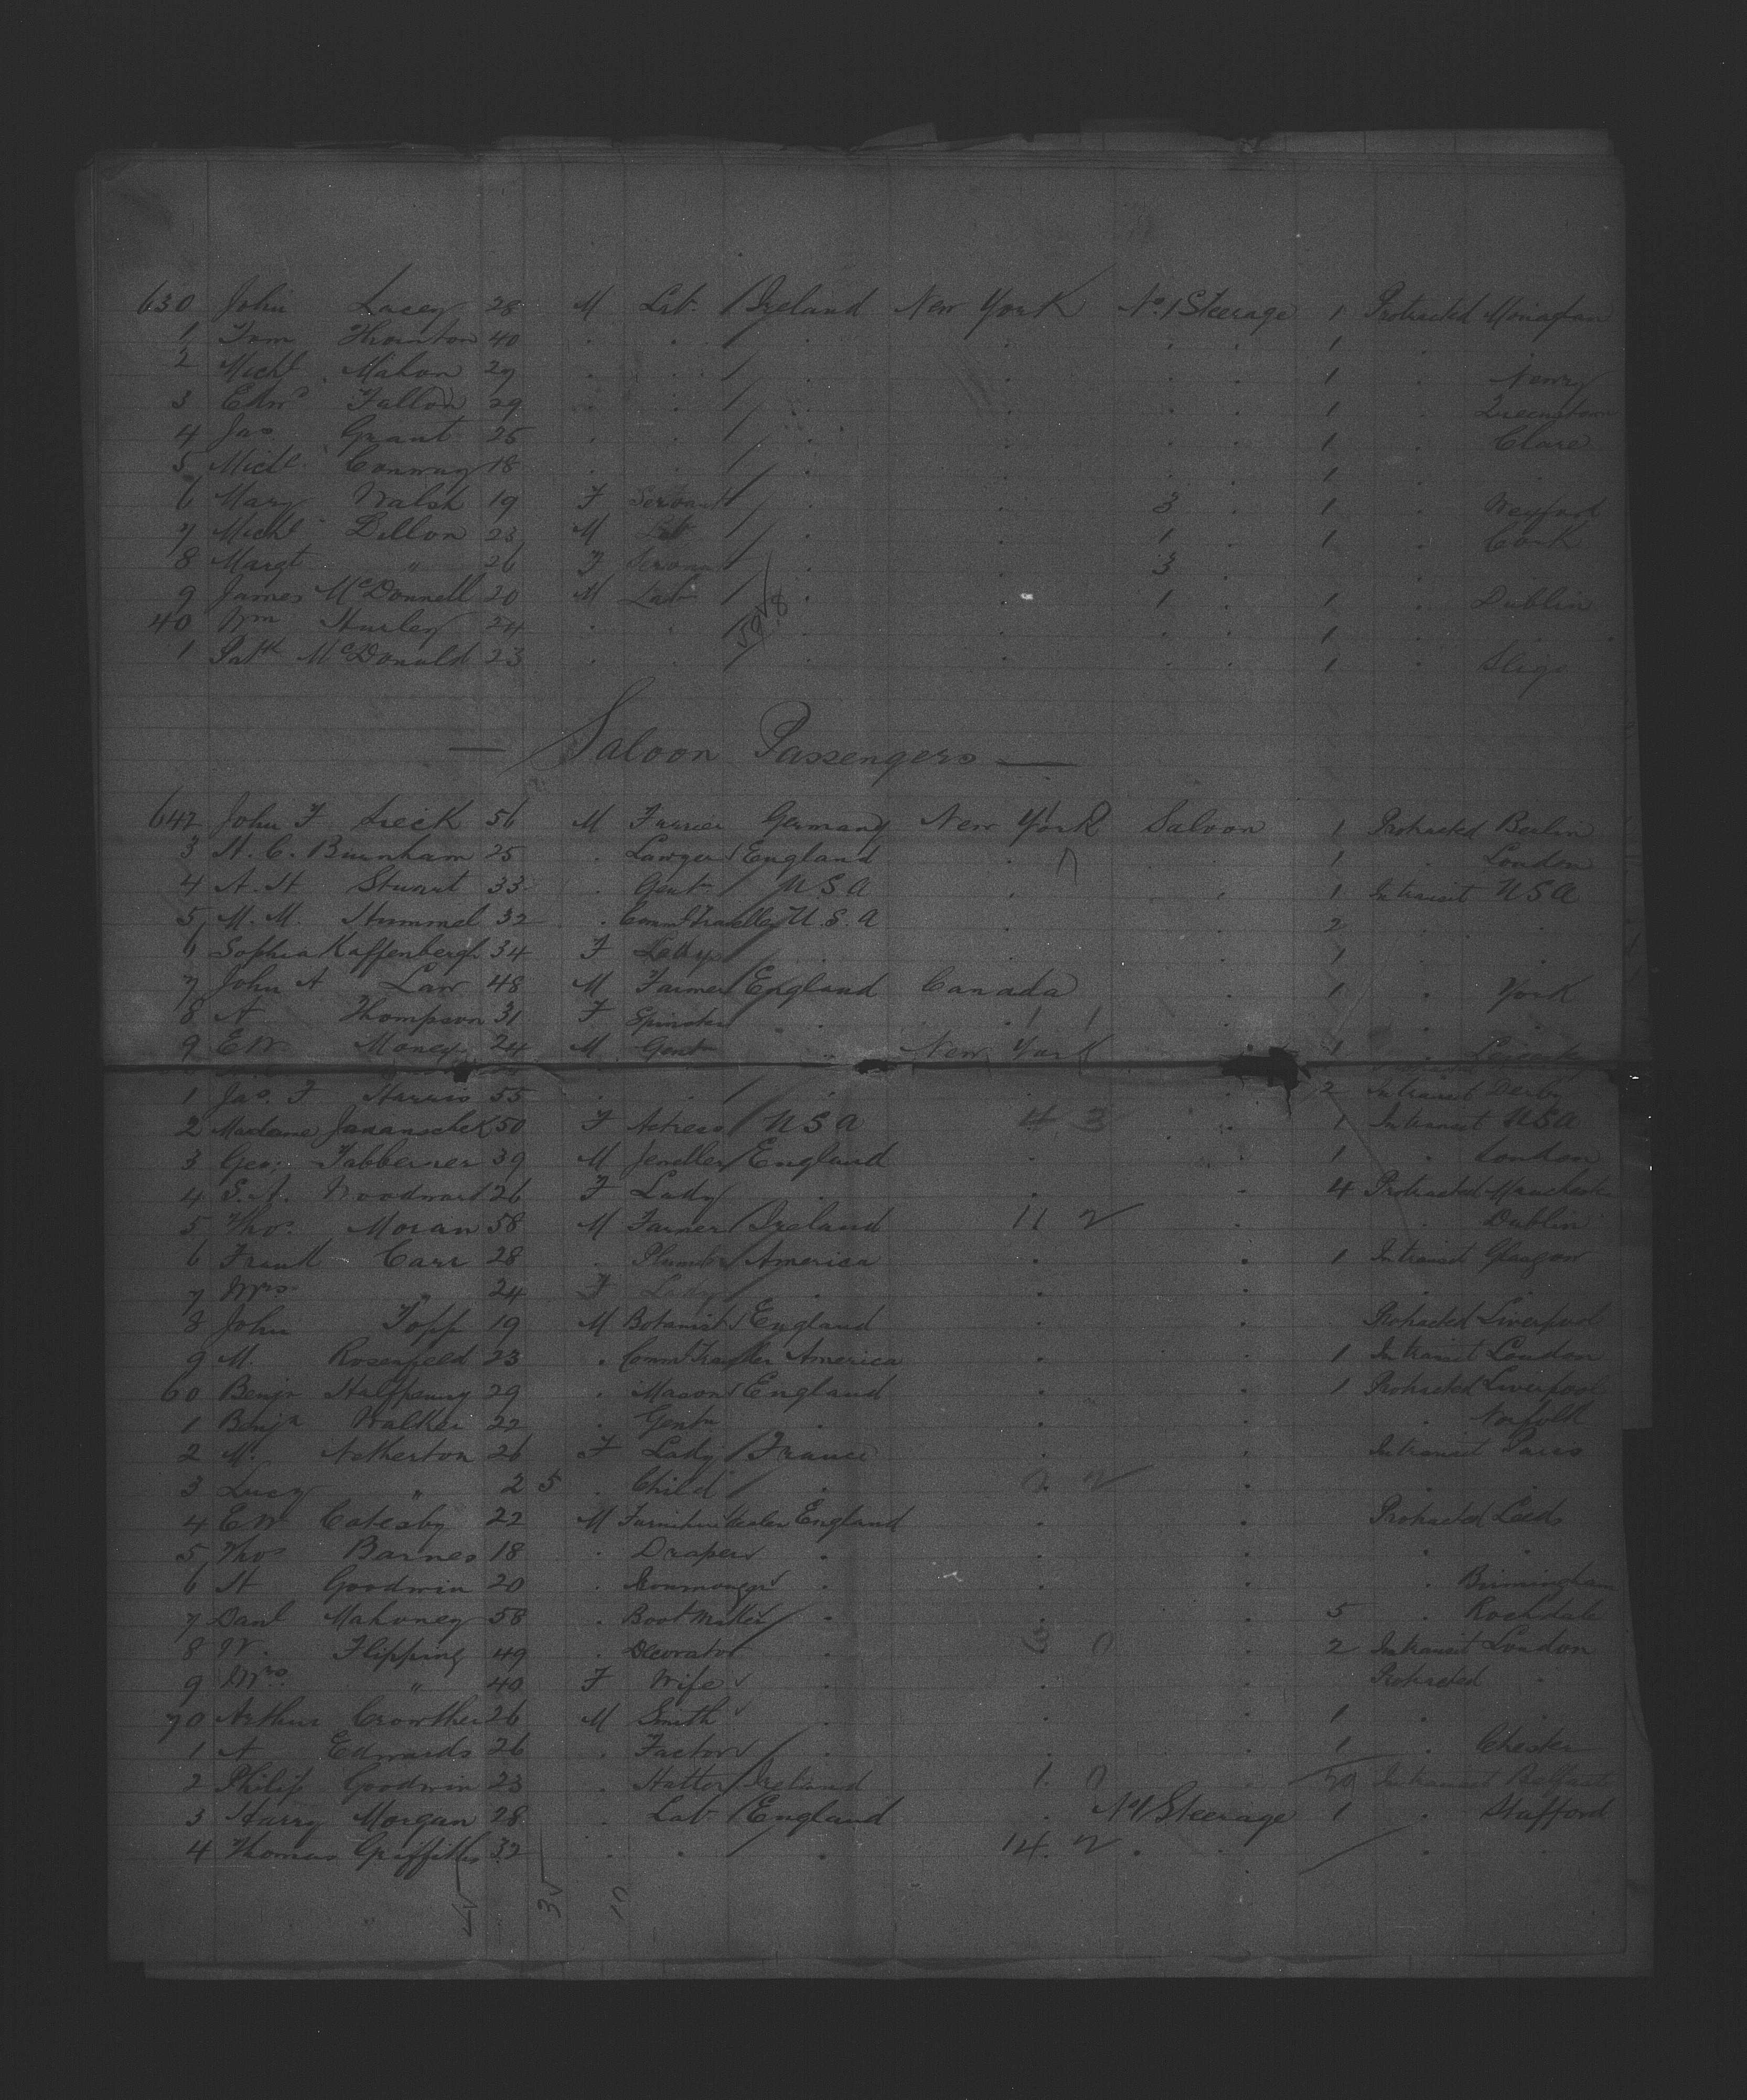 630 John Lacey 28 M Lab. Ireland New York No. 1 Steerage 1 Protracted Monaghan
1 Tom Thornton 40 . . . . . . 1 . .
2 Michl Mahon 29 . . . . . . 1 . Newry
3 Edwd Fallon 29 . . . . . . 1 . Queenstown
4 Jas. Grant 25 . . . . . . 1 . Clare
5 Michl Conway 18 . . . . . . 1 . .
6 Mary Walsh 19 F Servant . . 3 . 1 . Wexford
7 Michl Dillon 23 M Lab . . 1 . 1 . Cork
8 Margt " 26 F Servant . . 3 . .
9 James McDonnell 20 M Lab . . 1 . 1 . Dublin
40 Wm Hurley 24 . . . . . . 1 . .
1 Patk McDonald 23 . . . . . 1 . Sligo
— Saloon Passengers —
642 John F Lieck 56 M Furrier Germany New York Saloon 1 Protracted Berlin
3 H. C. Burnham 25 . Lawyer England . . 1 . London
4 A. H. Stuart 33 . Gentn U S A . . 1 Intransit U S A
5 M. M. Hummel 32 . Comml Traveller U. S. A . . 2 . .
6 Sophia Kaffenbergh 34 F Lady . . . 1 . .
7 John A Law 48 M Farmer England Canada . 1 . York
8 A Thompson 31 F Spinster . . . . .
9 E W. Money 24 M Gentn . New York 1 .
1 Jas. F Harris 55 . . . . . 2 Intransit Derby
2 Madame Janauschek 50 F Actress U S A 4 3 . 1 Intransit U S A
3 Geo: Tabberner 39 M Jeweller England . . 1 . London
4 S. A. Woodward 26 F Lady . . . 4 Protracted Manchester
5 Thos. Moran 58 M Farmer Ireland 11 2 . . Dublin
6 Frank Carr 28 . Plumber America . . 1 Intransit Glasgow
7 Mrs " 24 F Lady . . . . .
8 John Topp 19 M Botanist England . . Protracted Liverpool
9 M. Rosenfeld 23 . Comml Traveller America . . 1 Intransit London
60 Benjn Halfpenny 29 . Mason England . . 1 Protracted Liverpool
1 Benjn Walker 22 . Gentn . . . . Norfolk
2 M. Netherton 26 F Lady France . . Intransit Paris
3 Lucy " 2 5 . Child . 2 2 . . .
4 E W Catesby 22 M Furniture dealer England . . Protracted Leeds
5 Thos Barnes 18 . Draper . . . . .
6 H Goodwin 20 . Ironmonger . . . . Birmingham
7 Danl Mahoney 58 . Boot Maker . . . 5 . Rochdale
8 W. Flipping 49 . Decorator . 6 0 . 2 Intransit London
9 Mrs. " 40 F Wife . . . Protracted .
70 Arthur Crowther 26 M Smith . . . 1 . .
1 A Edwards 26 . Factor . . . 1 . Chester
2 Philip Goodwin 23 . Hatter Ireland 1. 0 . Intransit Belfast
3 Harry Morgan 28 . Lab England . No 1 Steerage 1 . Stafford
4 Thomas Griffiths 32 . . . 14. 2 . . . .